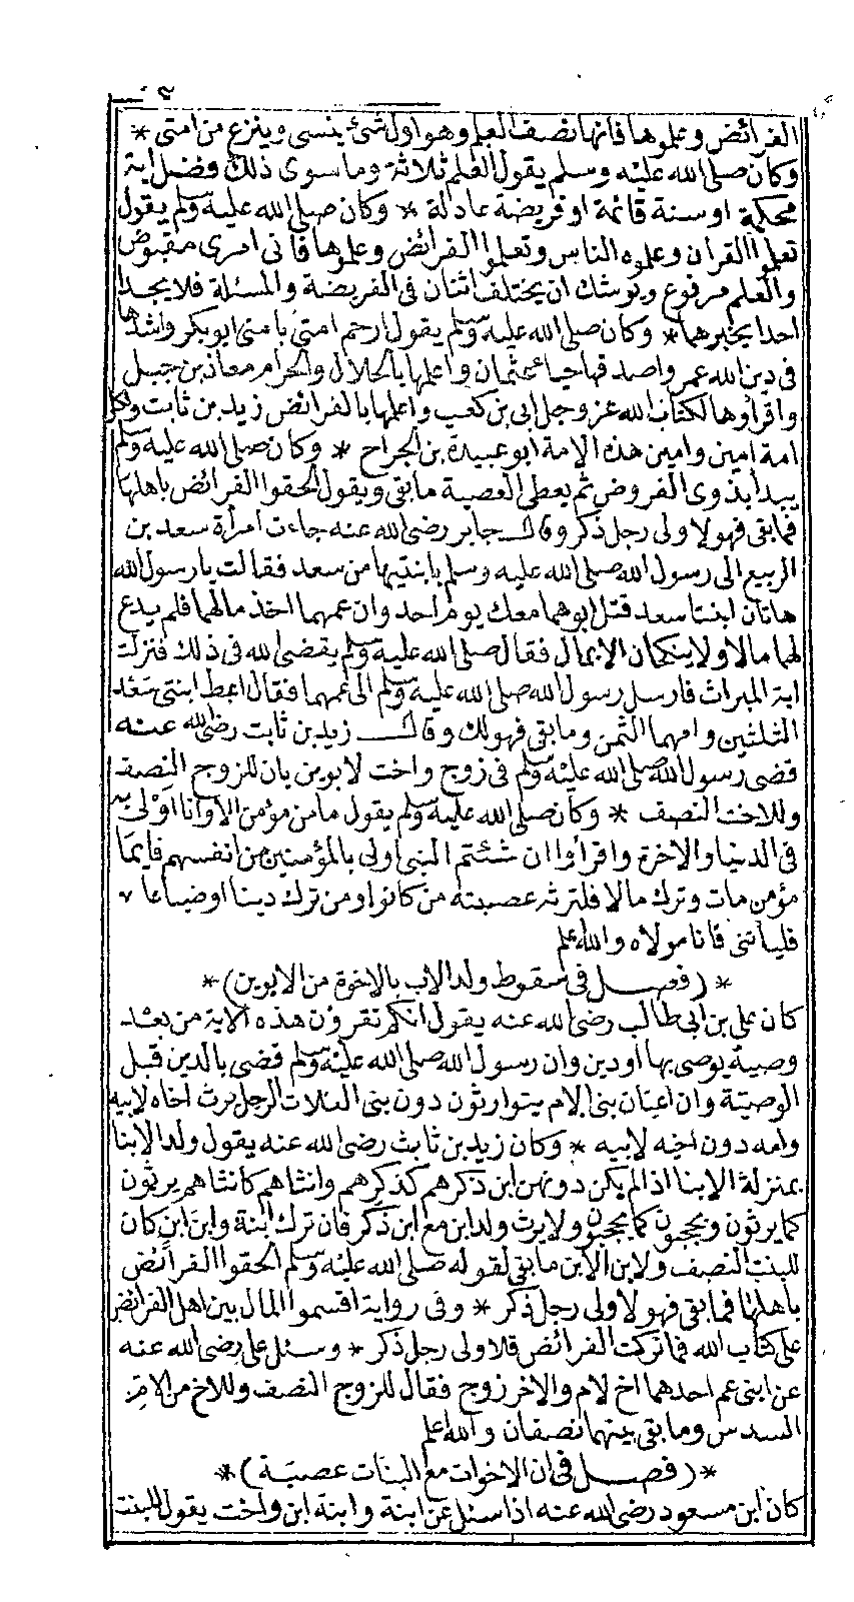 الفرائض وعلموها فانها نصف العلم وهو اول شئ ينسى وينزع من امتى *
وكان صلى الله عليه وسلم يقول العلم ثلاثة وما سوى ذلك فضل اية
محكمة او سنة قائمة او فريضة عادلة * وكان صلى الله عليه وسلم يقول
تعلموا القرآن وعلموه الناس وتعلموا الفرائض وعلموها فانى امرئ مقبوض
والعلم مرفوع ويوشك ان يختلف اثنان فى الفريضة والمسئلة فلا يجدا
احدا يخبرهما * وكان صلى الله عليه وسلم يقول ارحم امتى بامتى ابو بكر واشدها
فى دين الله عمر واصدقها حياء عثمان واعلمها بالحلال والحرام معاذ بن جبل
واقرأوها لكتاب الله عز وجل ابى بن كعب واعلمها بالفرائض زيد بن ثابت ولكل
امة امين وامين هذه الامة ابو عبيدة بن الجراح * وكان صلى الله عليه وسلم
يبدأ بذوى الفروض ثم يعطى العصبة ما بقى ويقول الحقوا الفرائض باهلها
فما بقى فهو لاولى رجل ذكر وقال جابر رضى الله عنه جاءت امرأة سعد بن
الربيع الى رسول الله صلى الله عليه وسلم بابنتيها من سعد فقالت يا رسول الله
هاتان ابنتا سعد قتل ابوهما معك يوم احد وان عمهما اخذ مالهما فلم يدع
لهما مالا ولا ينكحان الا بمال فقال صلى الله عليه وسلم يقضى الله فى ذلك فنزلت
اية الميراث فارسل رسول الله صلى الله عليه وسلم الى عمهما فقال اعط ابنتى سعد
الثلثين وامهما الثمن وما بقى فهو لك وقال زيد بن ثابت رضى الله عنه
قضى رسول الله صلى الله عليه وسلم فى زوج واخت لابوين بان للزوج النصف
وللاخت النصف * وكان صلى الله عليه وسلم يقول ما من مؤمن الا وانا اولى به
فى الدنيا والاخرة واقرأوا ان شئتم النبى اولى بالمؤمنين من انفسهم فايما
مؤمن مات وترك مالا فلترثه عصبته من كانوا ومن ترك دينا او ضياعا
فلياتنى فانا مولاه والله اعلم
* (فصل فى سقوط ولد الاب بالاخوة من الابوين) *
كان على بن ابى طالب رضى الله عنه يقول انكم تقرؤن هذه الاية من بعد
وصية يوصى بها او دين وان رسول الله صلى الله عليه وسلم قضى بالدين قبل
الوصية وان اعيان بنى الام يتوارثون دون بنى العلات الرجل يرث اخاه لابيه
وامه دون اخيه لابيه * وكان زيد بن ثابت رضى الله عنه يقول ولد الابنا
بمنزلة الابنا اذا لم يكن دونهن ابن ذكرهم كذكرهم وانثاهم كانثاهم يرثون
كما يرثون ويحجبون كما يحجبون ولا يرث ولد ابن مع ابن ذكر فان ترك ابنة وابن ابن كان
للبنت النصف ولابن الابن ما بقى لقوله صلى الله عليه وسلم الحقوا الفرائض
باهلها فما بقى فهو لاولى رجل ذكر * وفى رواية اقسموا المال بين اهل الفرائض
على كتاب الله فما تركت الفرائض فلاولى رجل ذكر * وسئل على رضى الله عنه
عن ابنى عم احدهما اخ لام والاخر زوج فقال للزوج النصف وللاخ من الام
السدس وما بقى بينهما نصفان والله اعلم
* (فصل فى ان الاخوات مع البنات عصبة) *
كان ابن مسعود رضى الله عنه اذا سئل عن ابنة وابنة ابن واخت يقول للبنت